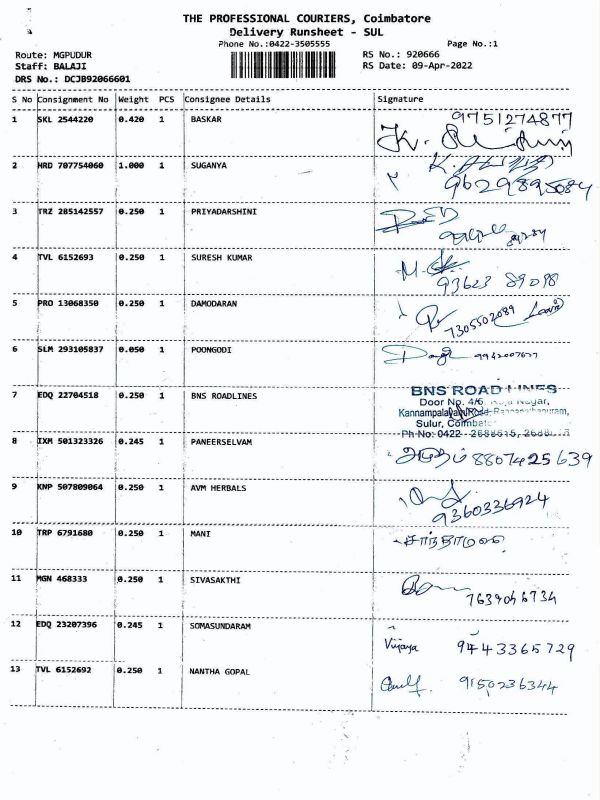 THE PROFESSIONAL COURIERS, Coimbatore
Delivery Runsheet - SUL
Phone No.:0422-3505555
Page No.:1
Route: MGPUDUR
RS No.: 920666
Staff: BALAJI
RS Date: 09-Apr-2022
DRS No.: DCJB92066601
S No Consignment No Weight PCS Consignee Details Signature
1 SKL 2544220 0.420 1 BASKAR 9751274877
2 HRD 707754060 1.000 1 SUGANYA 9629895084
3 TRZ 285142557 0.250 1 PRIYADARSHINI
4 TVL 6152693 0.250 1 SURESH KUMAR 93623 89098
5 PRO 13068350 0.250 1 DAMODARAN 7305502089
6 SLM 293105837 0.050 1 POONGODI
7 EDQ 22704518 0.250 1 BNS ROADLINES BNS ROAD LINES
Door No. 4/6, Nagar,
Kannampalayam
Sulur, Coimbatore
Ph No: 0422 - 2688615,
8 IXM 501323326 0.245 1 PANEERSELVAM 8807425639
9 KNP 507809064 0.250 1 AVM HERBALS 9360336924
10 TRP 6791680 0.250 1 MANI
11 MGN 468333 0.250 1 SIVASAKTHI 7639046734
12 EDQ 23207396 0.245 1 SOMASUNDARAM Vijaya 9443365729
13 TVL 6152692 0.250 1 NANTHA GOPAL 9150236344